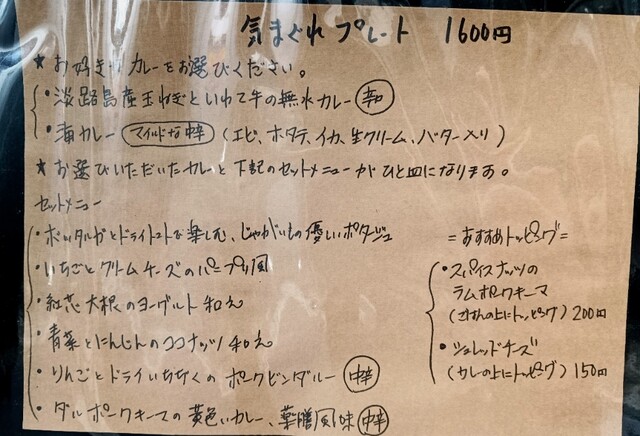 気まぐれプレート 1600円
★お好きなカレーをお選びください。
・淡路島産玉ねぎといわて牛の無水カレー 辛
・海カレー マイルドな中辛 (エビ、ホタテ、イカ、生クリーム、バター入り)
★お選びいただいたカレーと下記のセットメニューがひと皿になります。
セットメニュー
・ボッタルガとドライトマトで楽しむ、じゃがいもの優しいポタージュ
・いちごとクリームチーズのパニプリ風
・紅芯大根のヨーグルト和え
・青菜とにんじんのココナッツ和え
・りんごとドライいちぢくのポークビンダルー 中辛
・ダルポークキーマの黄色いカレー、薬膳風味 中辛
=おすすめトッピング=
・スパイスナッツの
ラムポークキーマ
(ごはんの上にトッピング) 200円
・シュレッドチーズ
(カレーの上にトッピング) 150円